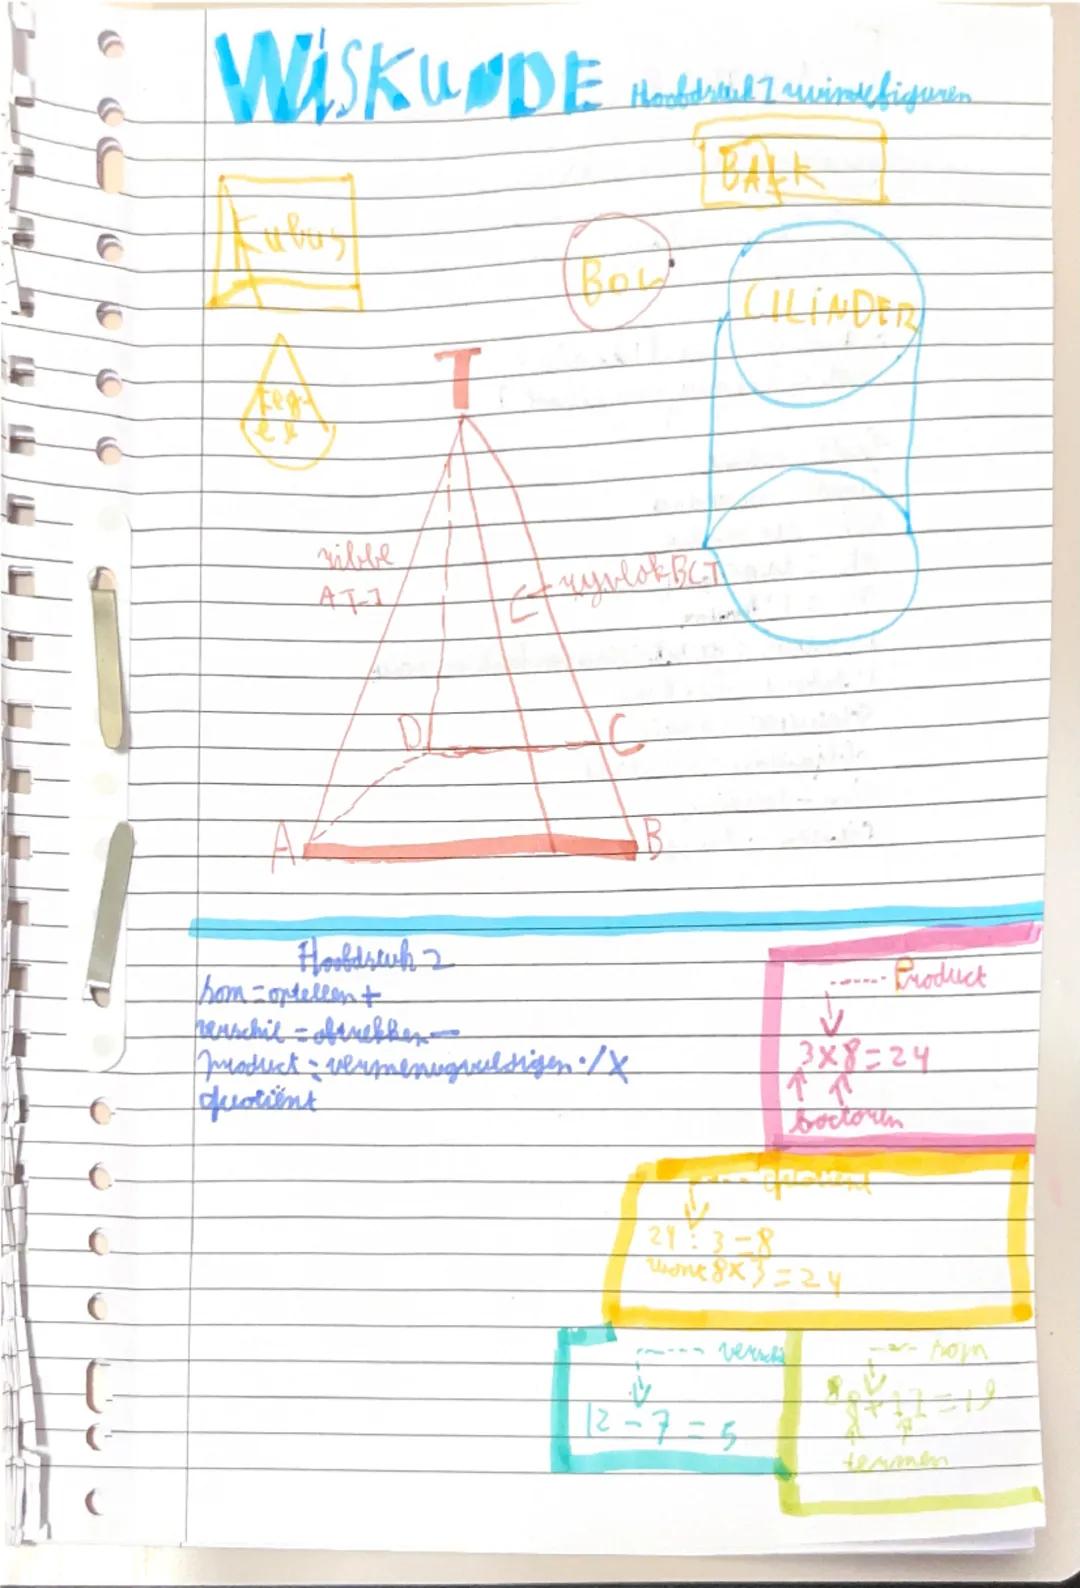 WiSKUNDE Hoofdstuk 1 ruimtefiguren
BALK
Kubus
BOL
CILiNDER
keg-
el
T
ribbe
AT
zyvlak BCT
D
C
A
B
Hoofdstuk 2
som = optellen +
verschil = aftrekken -
product = vermenigvuldigen · / x
quotiënt
Product
3 x 8 = 24
factoren
quotient
24 : 3 = 8
want 8 x 3 = 24
verschil
12 - 7 = 5
som
8 + 11 = 19
termen